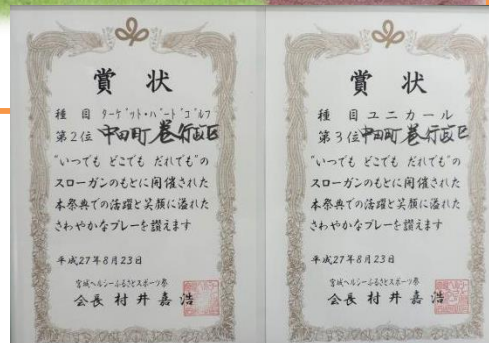 賞状
種目 ターゲット・バードゴルフ
第2位 中田町 巻行政区
"いつでも どこでも だれでも"の
スローガンのもとに開催された
本祭典での活躍と笑顔に溢れた
さわやかなプレーを讃えます
平成27年8月23日
宮城ヘルシーふるさとスポーツ祭
会長 村井嘉浩
賞状
種目 ユニカール
第3位 中田町 巻行政区
"いつでも どこでも だれでも"の
スローガンのもとに開催された
本祭典での活躍と笑顔に溢れた
さわやかなプレーを讃えます
平成27年8月23日
宮城ヘルシーふるさとスポーツ祭
会長 村井嘉浩